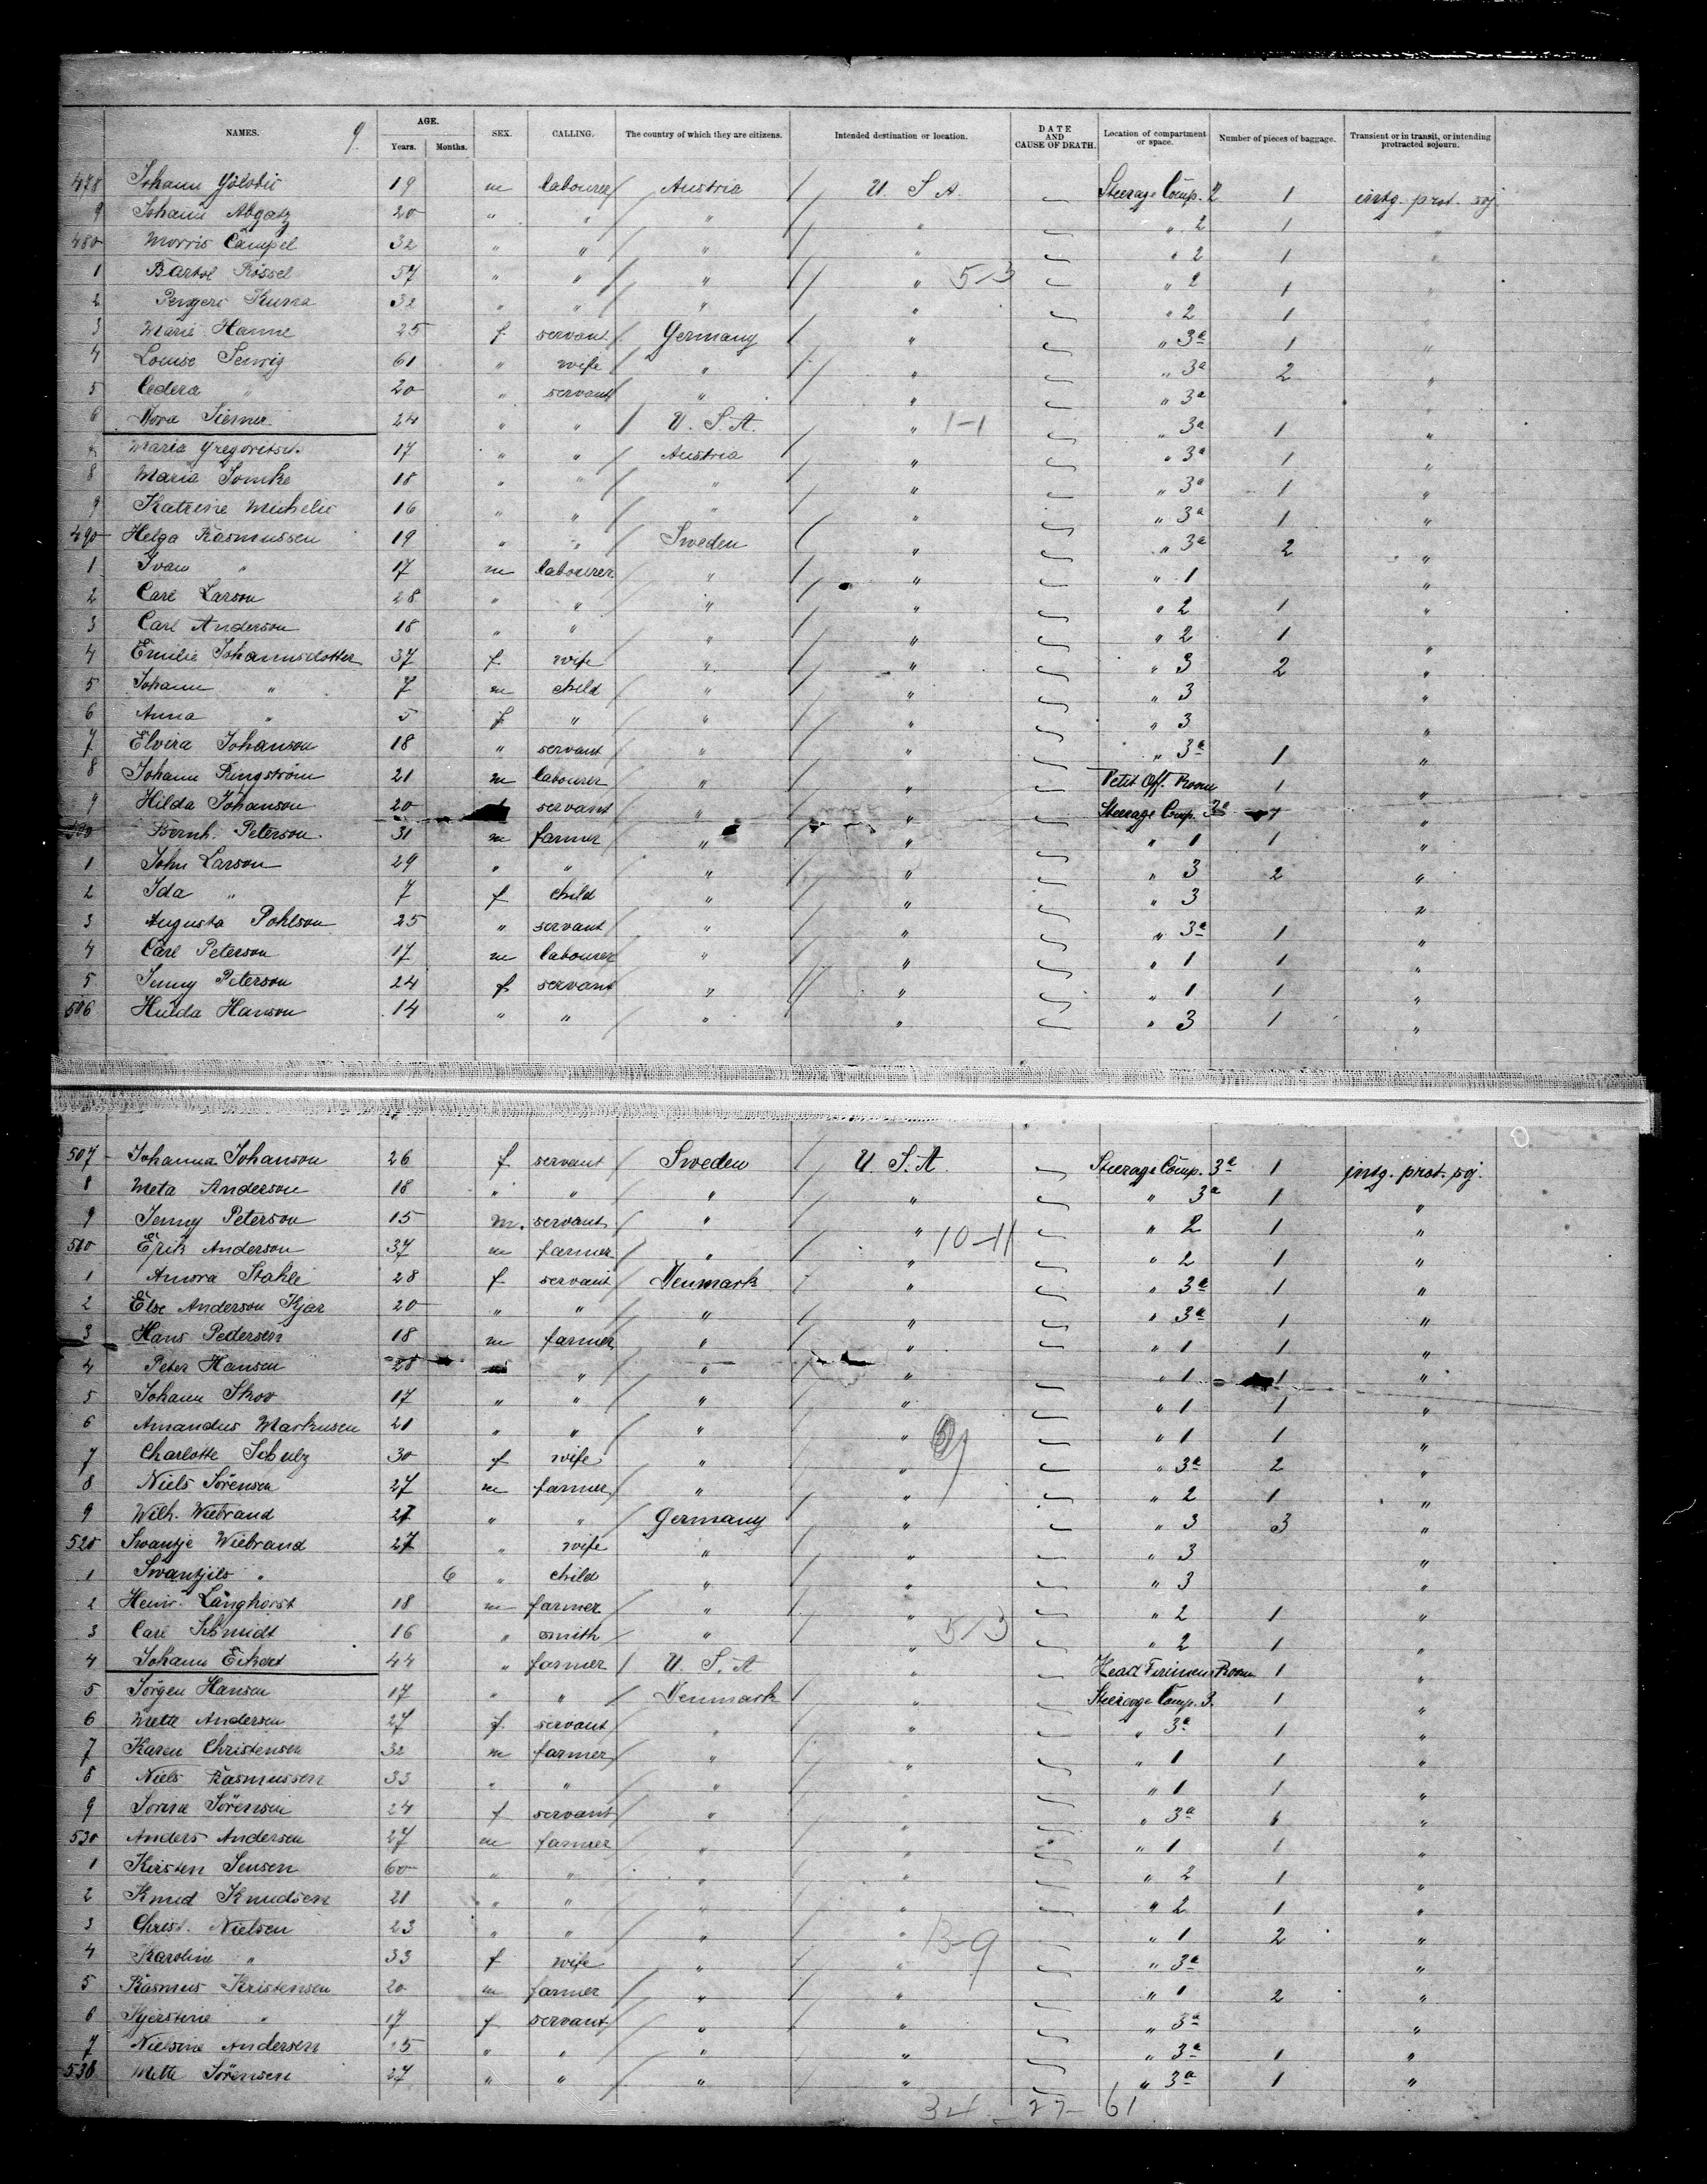 NAMES. 9. AGE. Years. Months. SEX. CALLING. The country of which they are citizens. Intended destination or location. DATE AND CAUSE OF DEATH. Location of compartment or space. Number of pieces of baggage. Transient or in transit, or intending protracted sojourn.
478 Johann 19 m labourer Austria U. S. A. Steerage Comp. 2 1 intg. prot. soj.
9 Johann Abgatz 20 " " " " " 2 1 "
480 Morris Campel 32 " " " " " 2 1 "
1 Bartol Rössel 57 " " " " 5-3 " 2 1 "
2 Kuma 32 " " " " " 2 1 "
3 Marie Hanne 25 f servant Germany " " 3a 1 "
4 Louise 61 " wife " " " 3a 2 "
5 Cedera " 20 " servant " " " 3a "
6 Nora Siemer 24 " " U. S. A. " 1-1 " 3a 1 "
7 Maria Gregoritsch 17 " " Austria " " 3a 1 "
8 Maria Tomke 18 " " " " " 3a 1 "
9 Katrine Michelic 16 " " " " " 3a 1 "
490 Helga Rasmussen 19 " " Sweden " " 3a 2 "
1 Ivan " 17 m labourer " " " 1 "
2 Carl Larson 28 " " " " " 2 1 "
3 Carl Anderson 18 " " " " " 2 1 "
4 Emilie Johannsdotter 37 f. wife " " " 3 2 "
5 Johann " 7 m child " " " 3 "
6 Anna " 5 f " " " " 3 "
7 Elvira Johanson 18 " servant " " " 3a 1 "
8 Johann Ringström 21 m labourer " " Petit Off. Room 1 "
9 Hilda Johanson 20 servant " " Steerage Comp. 3a 1 "
500 Bernh. Peterson 31 m farmer " " " 1 1 "
1 John Larson 29 " " " " " 3 2 "
2 Ida " 7 f child " " " 3 "
3 Augusta Pohlson 25 " servant " " " 3a 1 "
4 Carl Peterson 17 m labourer " " " 1 1 "
5 Jenny Peterson 24 f servant " " " 1 1 "
506 Hulda Hanson 14 " " " " " 3 1 "
507 Johanna Johanson 26 f servant Sweden U. S. A. Steerage Comp. 3a 1 intg. prot. soj.
8 Meta Anderson 18 " " " " " 3a 1 "
9 Jenny Peterson 15 m. servant " " " 2 1 "
510 Erik Anderson 37 m farmer " " 10-11 " 2 1 "
1 Amora Stahle 28 f servant Denmark " " 3a 1 "
2 Else Anderson Kjar 20 " " " " " 3a 1 "
3 Hans Pedersen 18 m farmer " " " 1 1 "
4 Peter Hansen 28 m " " " " 1 1 "
5 Johann Skov 17 " " " " " 1 1 "
6 Amandus Markusen 21 " " " " " 1 1 "
7 Charlotte Schulz 30 f wife " " " 3a 2 "
8 Niels Sörensen 27 m farmer " " " 2 1 "
9 Wilh. Wiebrand 27 " " Germany " " 3 3 "
520 Swantje Wiebrand 27 " wife " " " 3 "
1 Swantjils " 6 " child " " " 3 "
2 Heinr. Langhorst 18 m farmer " " " 2 1 "
3 Carl Schmidt 16 " smith " " 5/3 " 2 1 "
4 Johann Eckert 44 " farmer U. S. A " Head Firimens Room 1 "
5 Jörgen Hansen 17 " " Denmark " Steerage Comp. 3. 1 "
6 Mette Andersen 27 f. servant " " " 3a 1 "
7 Karen Christensen 32 m farmer " " " 1 1 "
8 Niels Rasmussen 33 " " " " " 1 1 "
9 Sorine Sörensen 24 f servant " " " 3a 1 "
530 Anders Andersen 27 m farmer " " " 1 1 "
1 Kirsten Jensen 60 " " " " " 2 1 "
2 Knud Knudsen 21 " " " " " 2 1 "
3 Christ. Nielsen 23 " " " " 13-9 " 1 2 "
4 Karoline " 33 f wife " " " 3a "
5 Rasmus Kristensen 20 m farmer " " " 1 2 "
6 Kjerstine " 17 f servant " " " 3a "
7 Nielsine Andersen 15 " " " " " 3a 1 "
538 Mette Sörensen 27 " " " " " 3a 1 "
34 - 27 - 61